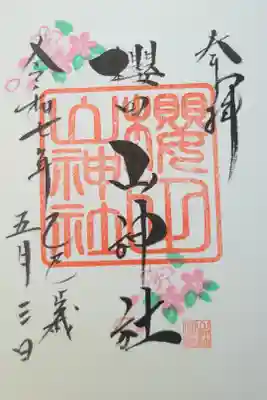 奉拝
櫻田山神社
櫻田
山神社
令和七年 乙巳歳
五月三日